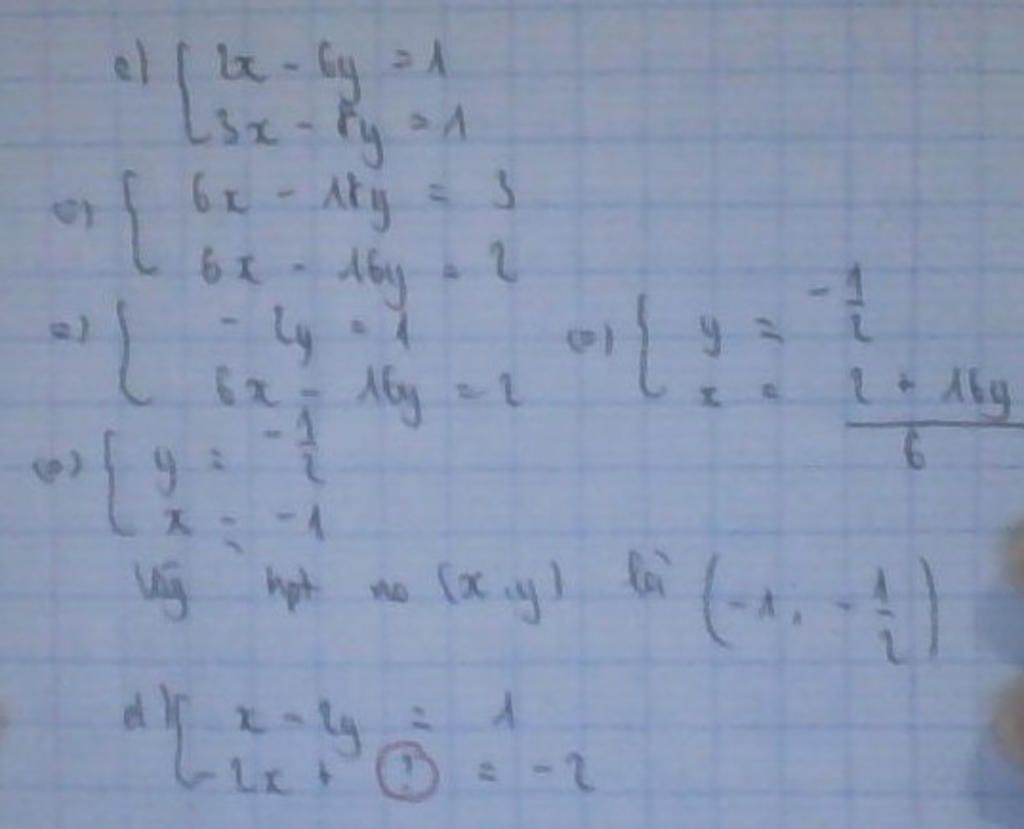 c) { 2x - 6y = 1
3x - 8y = 1
<=> { 6x - 18y = 3
6x - 16y = 2
<=> { - 2y = 1
6x - 16y = 2
<=> { y = -1/2
x = (2 + 16y)/6
<=> { y = -1/2
x = -1
Vậy hpt no (x,y) là (-1; -1/2)
d) { x - 2y = 1
-2x + ? = -2